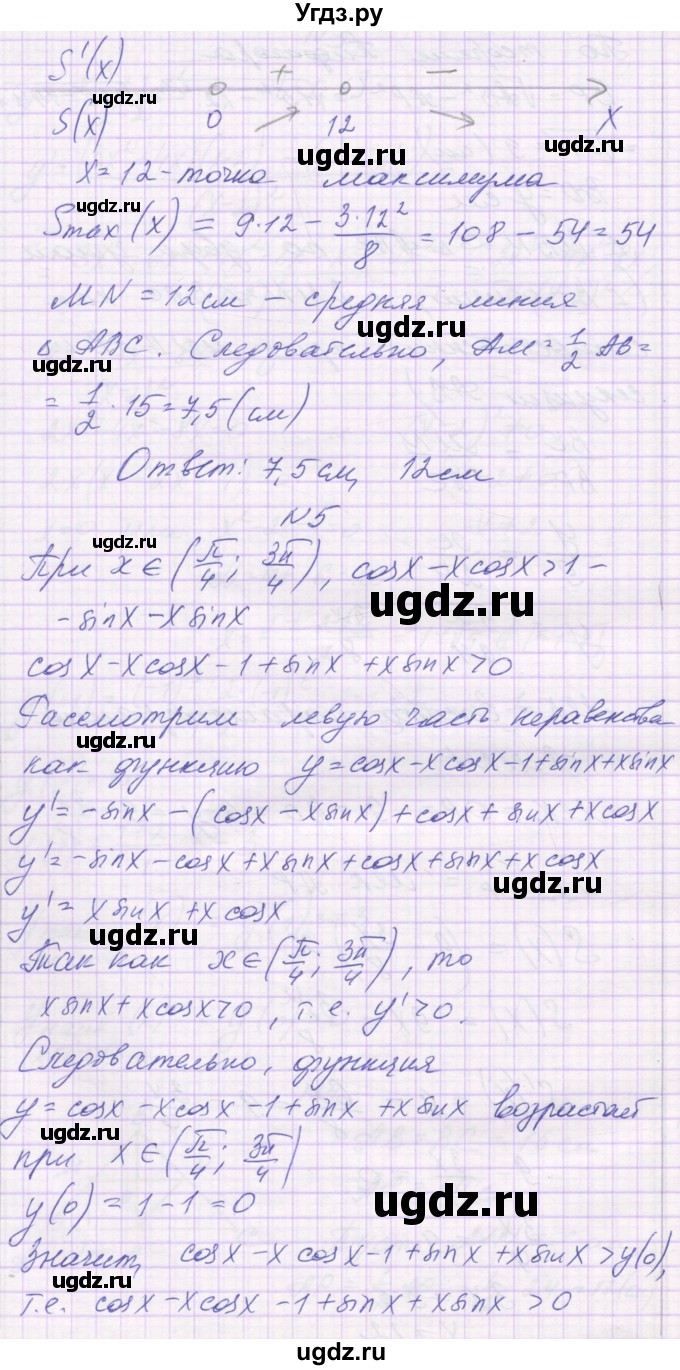 Угдз.ру
S'(x) + −
S(x) 0 12 x
x=12 - точка максимума
Smax(x) = 9·12 − 3·12²/8 = 108 − 54 = 54
MN = 12 см − средняя линия
Δ ABC. Следовательно, AM = 1/2 AB =
= 1/2 · 15 = 7,5 (см)
Ответ: 7,5 см, 12 см
N5
При x ∈ (π/4; 3π/4), cosx − xcosx > 1 −
− sinx − xsinx
cosx − xcosx − 1 + sinx + xsinx > 0
Рассмотрим левую часть неравенства
как функцию y = cosx − xcosx − 1 + sinx + xsinx
y' = −sinx − (cosx − xsinx) + cosx + sinx + xcosx
y' = −sinx − cosx + xsinx + cosx + sinx + xcosx
y' = xsinx + xcosx
Так как x ∈ (π/4; 3π/4), то
xsinx + xcosx > 0, т.е. y' > 0.
Следовательно, функция
y = cosx − xcosx − 1 + sinx + xsinx возрастает
при x ∈ (π/4; 3π/4)
y(0) = 1 − 1 = 0
Значит, cosx − xcosx − 1 + sinx + xsinx > y(0),
т.е. cosx − xcosx − 1 + sinx + xsinx > 0
Угдз.ру